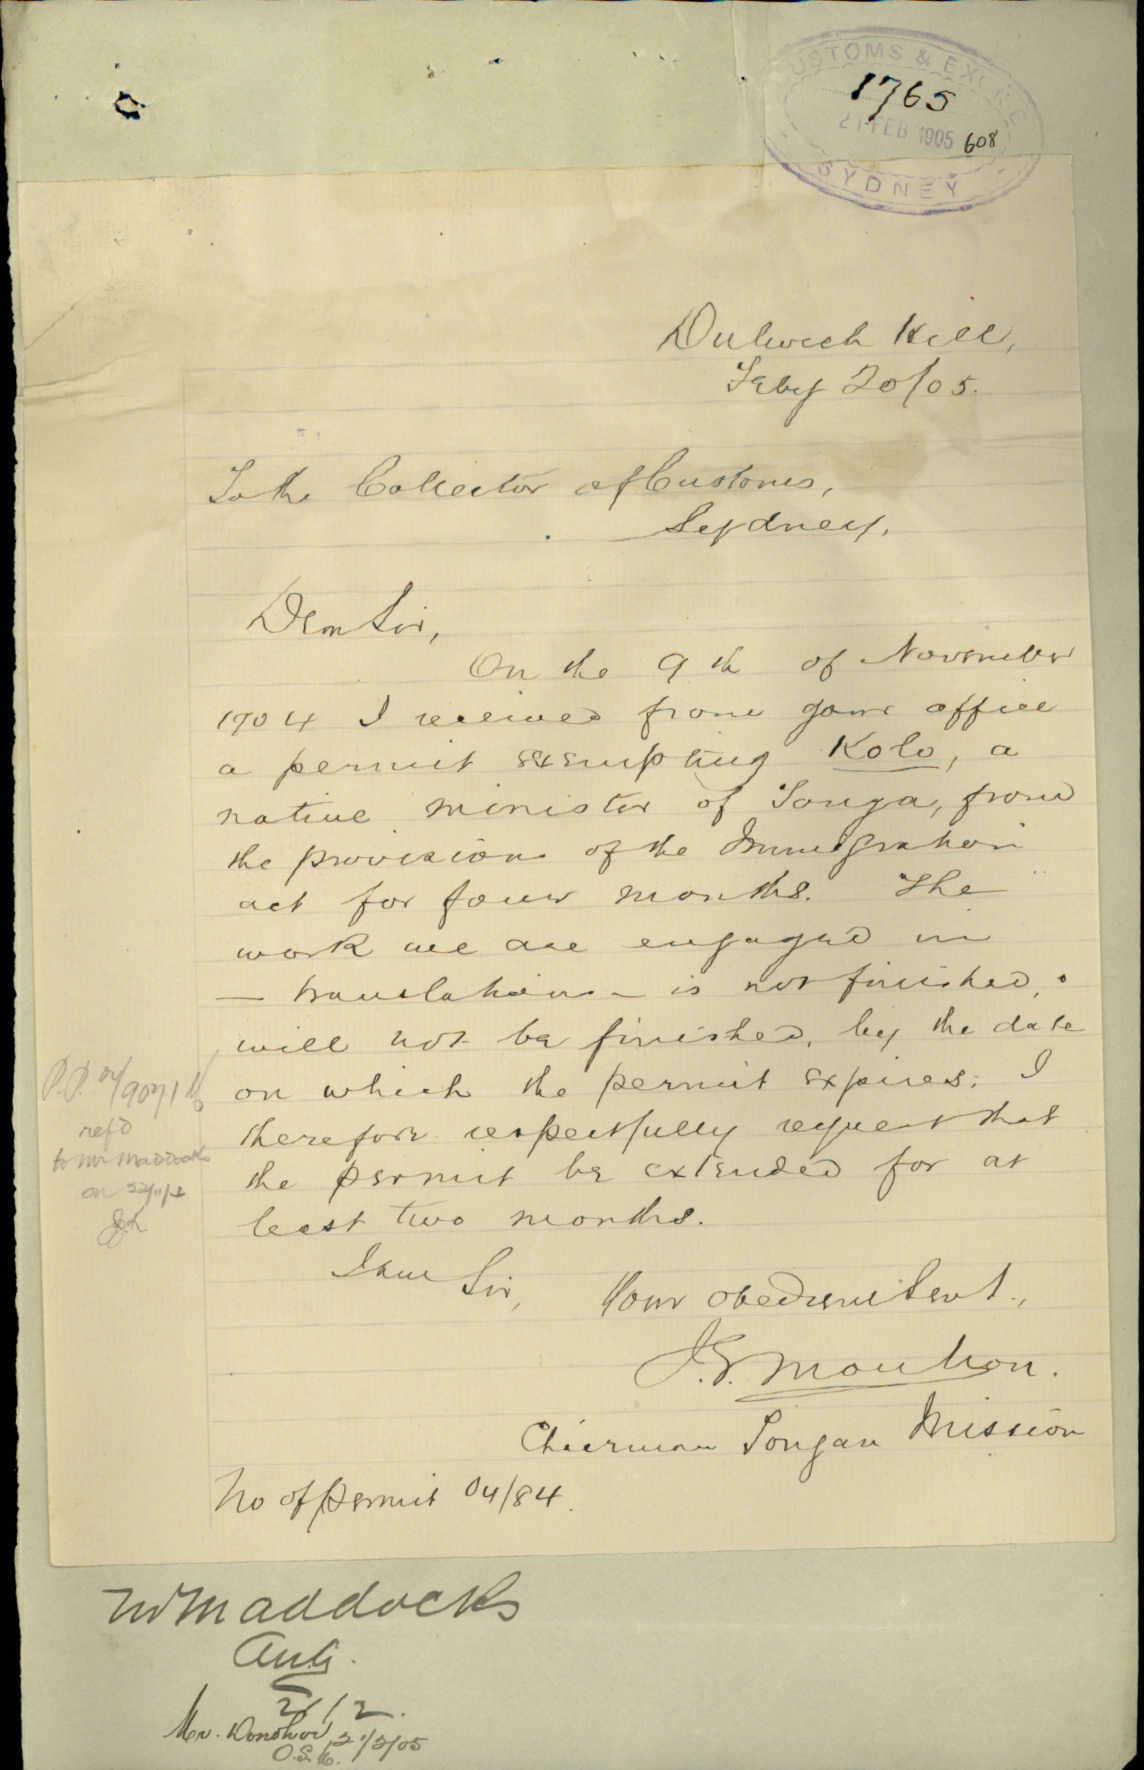 CUSTOMS & EXCISE
1765
21 FEB 1905 608
SYDNEY
Dulwich Hill,
Feby 20/05.
To the Collector of Customs,
Sydney.
Dear Sir,
On the 9th of November
1904 I received from your office
a permit exempting Kolo, a
native minister of Tonga, from
the provisions of the Immigration
act for four months. The
work we are engaged in
— translation — is not finished, &
will not be finished, by the date
on which the permit expires. I
therefore respectfully request that
the permit be extended for at
least two months.
I am Sir,
Your obedient Servt.,
J.E. Moulton.
Chairman Tongan Mission
No of Permit 04/84.
P.P. 04/
refd
to Mr Maddocks
on
Mr Maddocks
21/2.
Mr. Donohoe 21/2/05